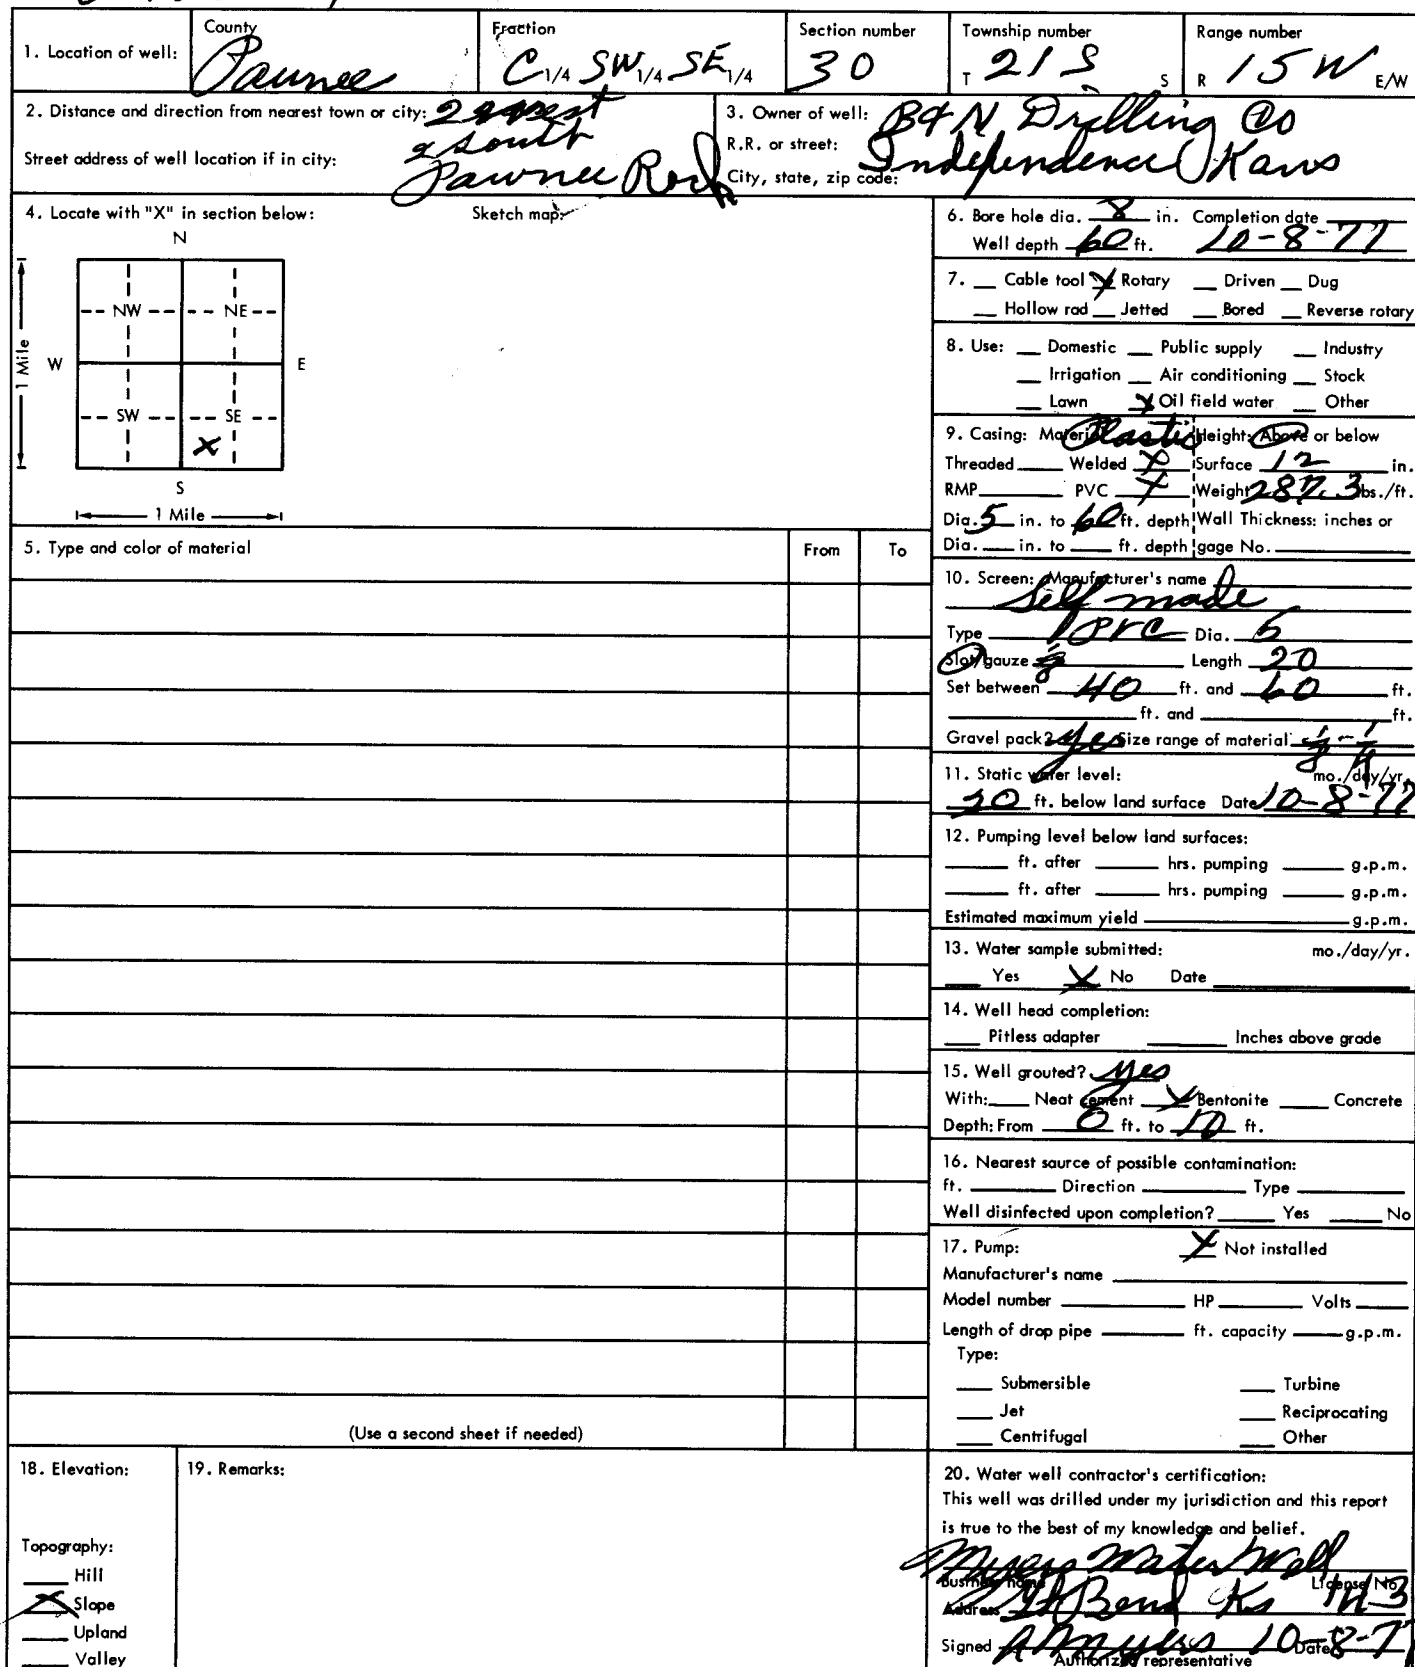 County
Fraction
Section number
Township number
Range number
1. Location of well:
Pawnee
C 1/4 SW 1/4 SE 1/4
30
T 21 S S
R 15 W E/W
2. Distance and direction from nearest town or city: 2 west
2 south
Street address of well location if in city:
Pawnee Rock
3. Owner of well: B&N Drilling Co
R.R. or street:
City, state, zip code: Independence Kans
4. Locate with "X" in section below:
Sketch map:
N
NW NE
W E
1 Mile
SW SE
X
S
1 Mile
5. Type and color of material From To
(Use a second sheet if needed)
6. Bore hole dia. 8 in. Completion date
Well depth 60 ft. 10-8-77
7. __ Cable tool X Rotary __ Driven __ Dug
__ Hollow rod __ Jetted __ Bored __ Reverse rotary
8. Use: __ Domestic __ Public supply __ Industry
__ Irrigation __ Air conditioning __ Stock
__ Lawn X Oil field water __ Other
9. Casing: Material Plastic Height: Above or below
Threaded ____ Welded X Surface 12 in.
RMP ____ PVC X Weight 287.3 lbs./ft.
Dia. 5 in. to 60 ft. depth Wall Thickness: inches or
Dia. ___ in. to ___ ft. depth gage No. ____
10. Screen: Manufacturer's name
Self made
Type PVC Dia. 5
Slot/gauze 1/8 Length 20
Set between 40 ft. and 60 ft.
____ ft. and ____ ft.
Gravel pack? yes Size range of material 1/8 - 1/4
11. Static water level: mo./day/yr.
20 ft. below land surface Date 10-8-77
12. Pumping level below land surfaces:
____ ft. after ____ hrs. pumping ____ g.p.m.
____ ft. after ____ hrs. pumping ____ g.p.m.
Estimated maximum yield ____ g.p.m.
13. Water sample submitted: mo./day/yr.
__ Yes X No Date ____
14. Well head completion:
__ Pitless adapter ____ Inches above grade
15. Well grouted? yes
With: ___ Neat cement X Bentonite ___ Concrete
Depth: From 0 ft. to 10 ft.
16. Nearest source of possible contamination:
ft. ____ Direction ____ Type ____
Well disinfected upon completion? ____ Yes ____ No
17. Pump: X Not installed
Manufacturer's name ____
Model number ____ HP ____ Volts ____
Length of drop pipe ____ ft. capacity ____ g.p.m.
Type:
__ Submersible __ Turbine
__ Jet __ Reciprocating
__ Centrifugal __ Other
18. Elevation:
Topography:
__ Hill
X Slope
__ Upland
__ Valley
19. Remarks:
20. Water well contractor's certification:
This well was drilled under my jurisdiction and this report
is true to the best of my knowledge and belief.
Myers Water Well
Business name License No.
Address Gt Bend Ks 143
Signed A Myers 10-8-77 Date
Authorized representative